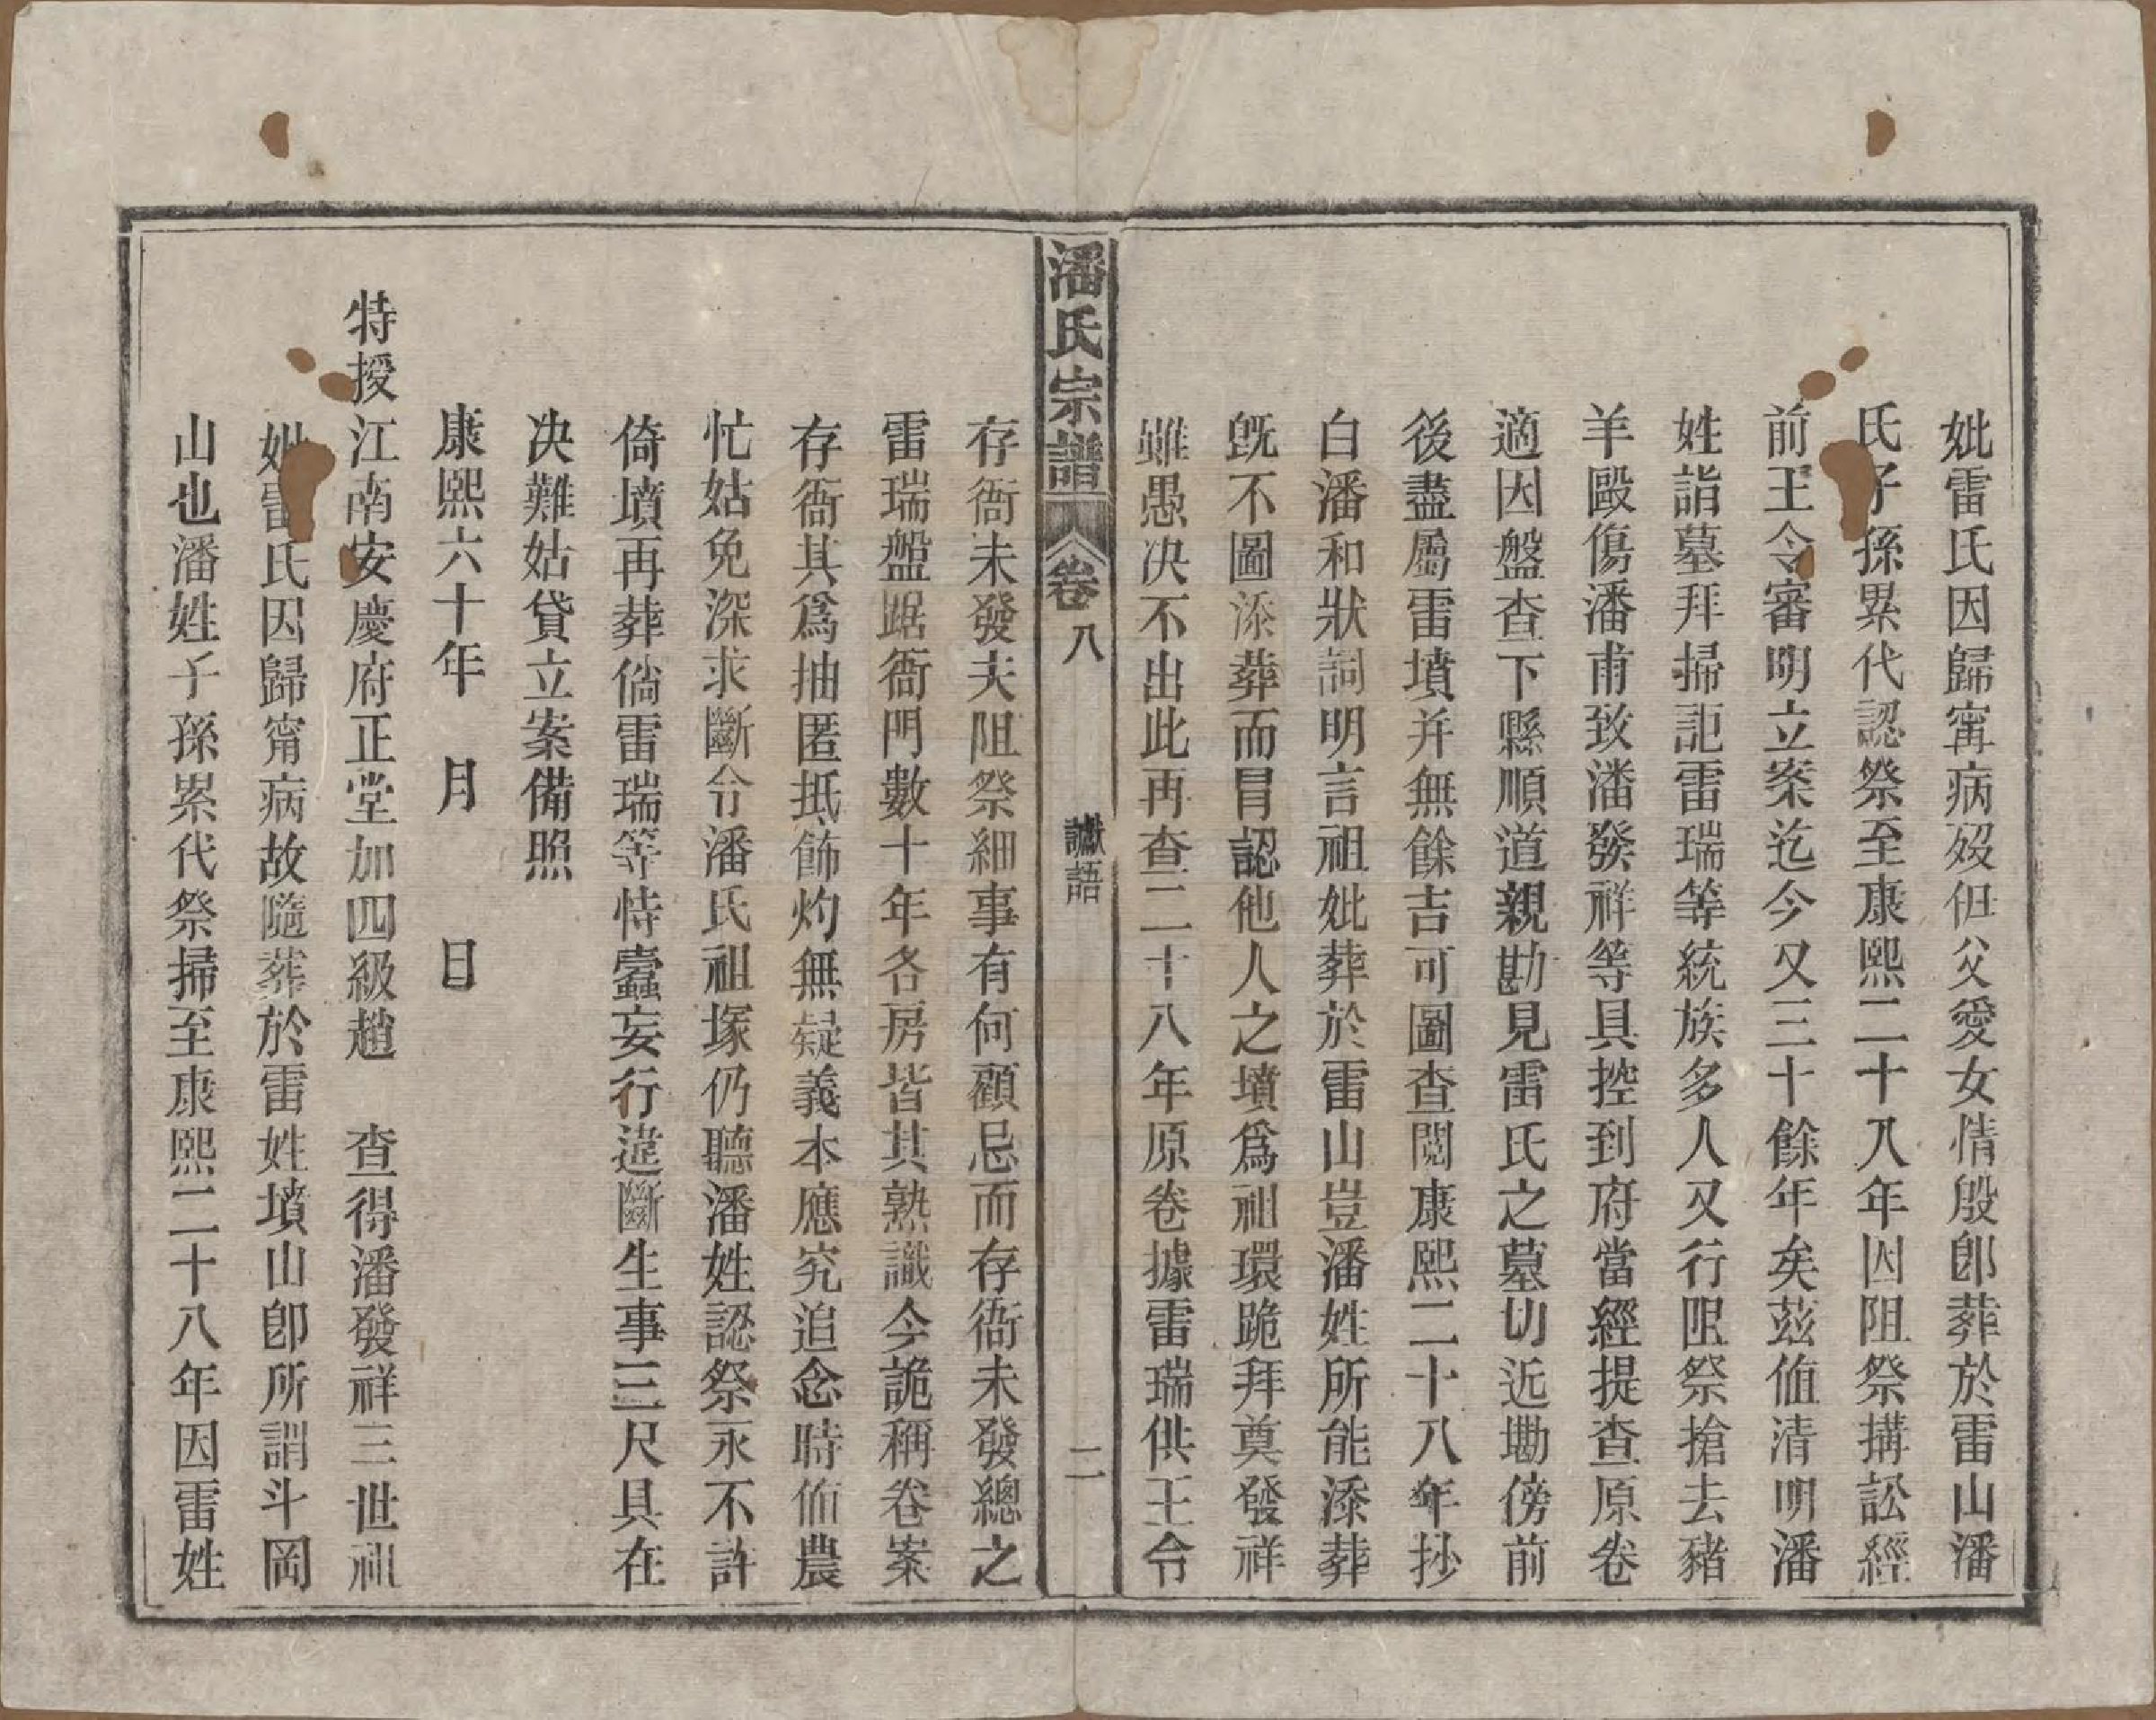 妣雷氏因歸寗病歿但父愛女情殷卽葬於雷山潘
氏子孫累代認祭至康熙二十八年因阻祭搆訟經
前王令審明立案迄今又三十餘年矣茲值清明潘
姓詣墓拜掃詎雷瑞等統族多人又行阻祭搶去豬
羊毆傷潘甫致潘發祥等具控到府當經提查原卷
適因盤查下縣順道親勘見雷氏之墓切近墈傍前
後盡屬雷墳并無餘吉可圖查閱康熙二十八年抄
白潘和狀詞明言祖妣葬於雷山豈潘姓所能添葬
旣不圖添葬而冐認他人之墳爲祖環跪拜奠發祥
雖愚决不出此再查二十八年原卷據雷瑞供王令
潘氏宗譜
卷八
讞語
二
存衙未發夫阻祭細事有何顧忌而存衙未發總之
雷瑞盤踞衙門數十年各房皆其熟識今詭稱卷案
存衙其爲抽匿抵飾灼無疑義本應究追念時值農
忙姑免深求斷令潘氏祖塚仍聽潘姓認祭永不許
倚墳再葬倘雷瑞等恃蠹妄行違斷生事三尺具在
决難姑貸立案備照
康熙六十年　月　　日
特授江南安慶府正堂加四級趙　查得潘發祥三世祖
妣雷氏因歸甯病故隨葬於雷姓墳山卽所謂斗岡
山也潘姓子孫累代祭掃至康熙二十八年因雷姓